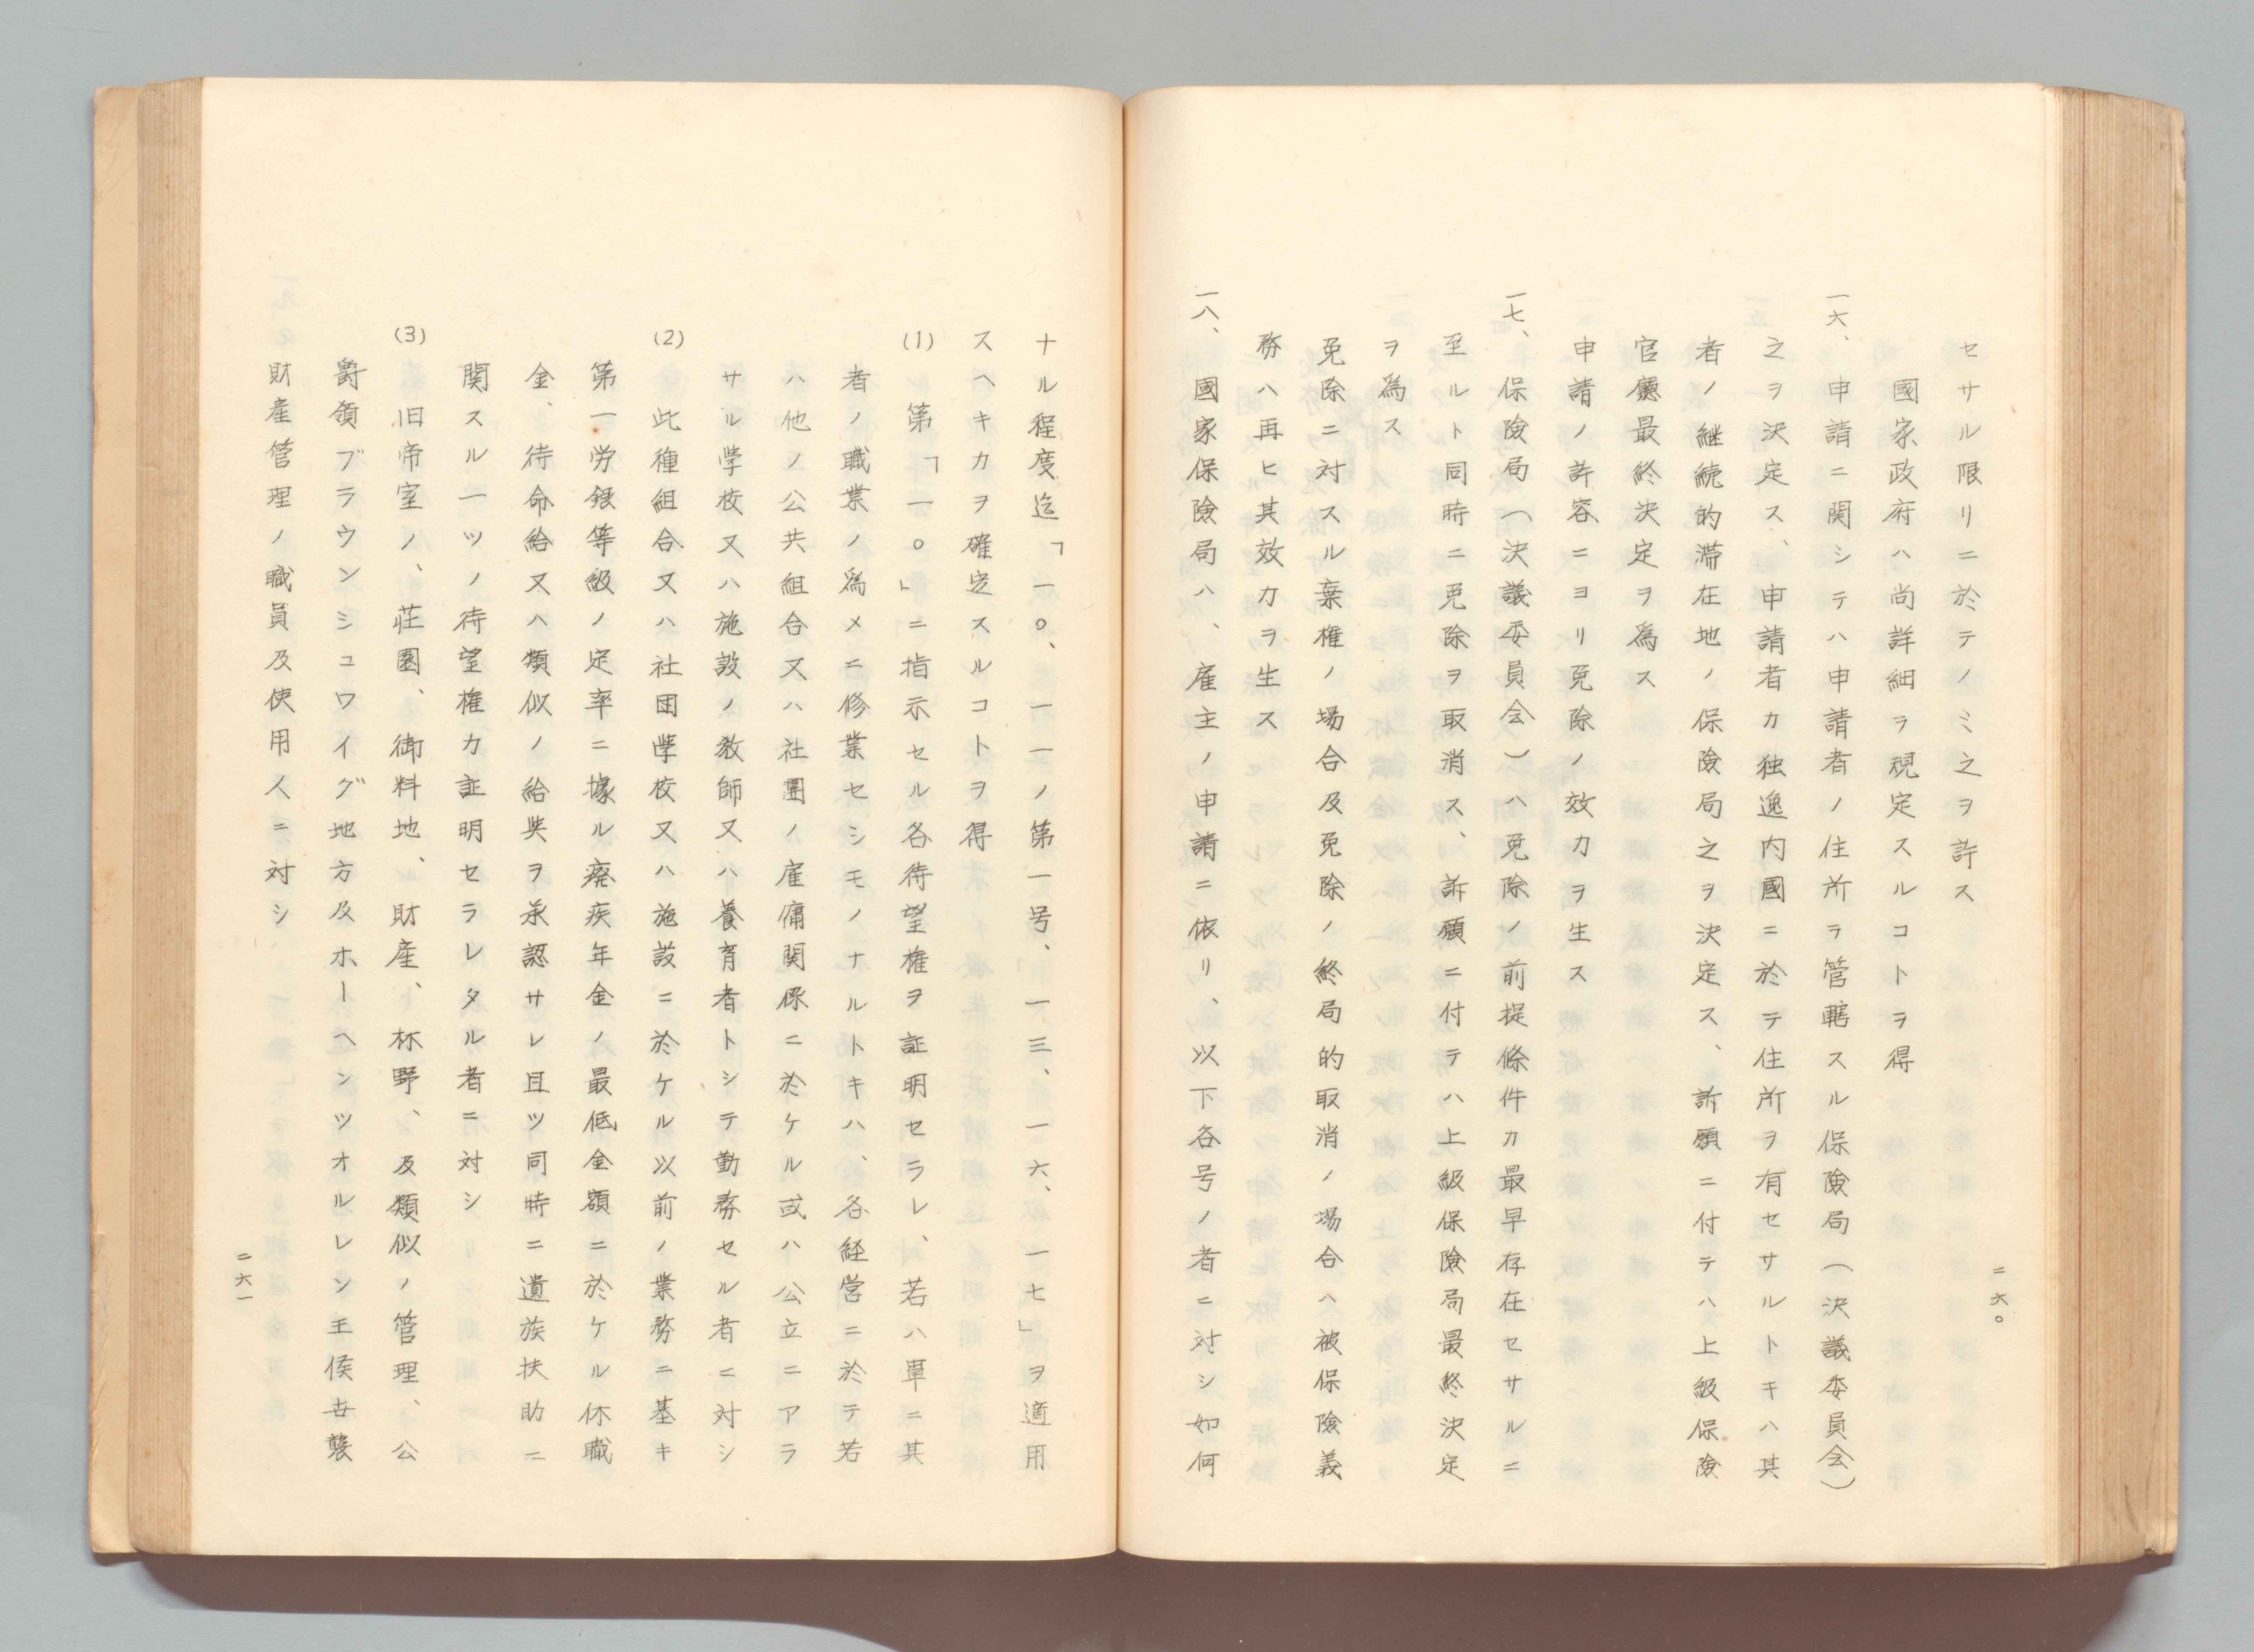 セサル限リニ於テノミ之ヲ許ス
國家政府ハ尚詳細ヲ規定スルコトヲ得
一六、申請ニ関シテハ申請者ノ住所ヲ管轄スル保險局（決議委員会）
之ヲ決定ス、申請者カ独逸内國ニ於テ住所ヲ有セサルトキハ其
者ノ継続的滞在地ノ保險局之ヲ決定ス、訴願ニ付テハ上級保險
官廳最終決定ヲ爲ス
申請ノ許容ニヨリ免除ノ效力ヲ生ス
一七、保險局（決議委員会）ハ免除ノ前提條件カ最早存在セサルニ
至ルト同時ニ免除ヲ取消ス、訴願ニ付テハ上級保險局最終決定
ヲ爲ス
免除ニ対スル棄権ノ場合及免除ノ終局的取消ノ場合ハ被保險義
務ハ再ヒ其效力ヲ生ス
一八、國家保險局ハ、雇主ノ申請ニ依リ、以下各号ノ者ニ対シ如何
二六〇
ナル程度迄「一〇、一一ノ第一号、一三、一六、一七」ヲ適用
スヘキカヲ確定スルコトヲ得
(1) 第「一〇」ニ指示セル各待望権ヲ証明セラレ、若ハ單ニ其
者ノ職業ノ爲メニ修業セシモノナルトキハ、各経営ニ於テ若
ハ他ノ公共組合又ハ社團ノ雇傭関係ニ於ケル或ハ公立ニアラ
サル学校又ハ施設ノ教師又ハ養育者トシテ勤務セル者ニ対シ
(2) 此種組合又ハ社団学校又ハ施設ニ於ケル以前ノ業務ニ基キ
第一労銀等級ノ定率ニ據ル廃疾年金ノ最低金額ニ於ケル休職
金、待命給又ハ類似ノ給與ヲ承認サレ且ツ同時ニ遺族扶助ニ
関スル一ツノ待望権カ証明セラレタル者ニ対シ
(3) 旧帝室ノ、荘園、御料地、財産、林野、及類似ノ管理、公
爵領ブラウンシュワイグ地方及ホーヘンツオルレン王侯世襲
財産管理ノ職員及使用人ニ対シ
二六一